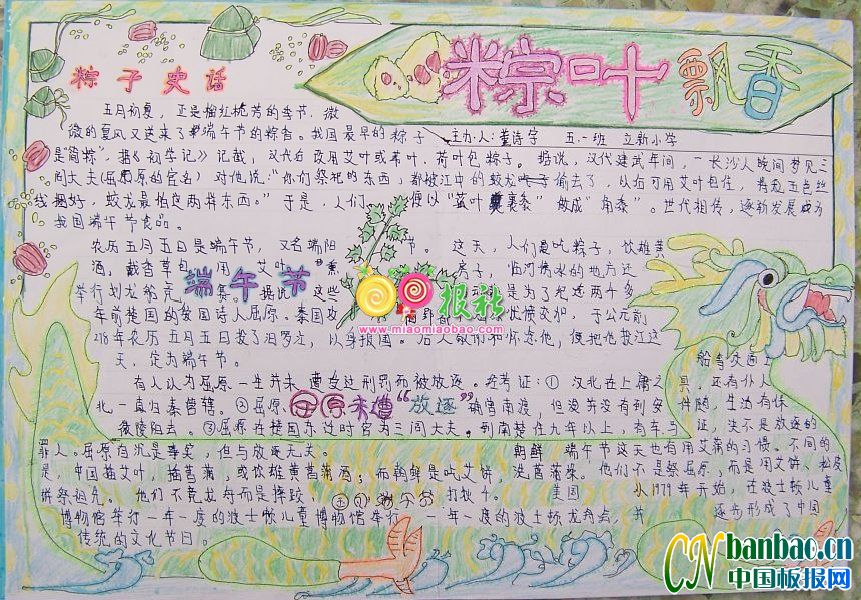 粽叶飘香
粽子史话
五月初夏，正是榴红桃芳的季节，微
微的夏风又送来了端午节的粽香。我国最早的粽子
主办人:董诗宇 五.一班 立新小学
是"筒粽"。据《初学记》记载，汉代
改用艾叶或苇叶、荷叶包粽子。据说，汉代建武年间，一长沙人晚间梦见三
闾大夫(屈原的官名)对他说:"你们祭祀的东西，都被江中的蛟龙偷去了，以后可用艾叶包住，
五色丝
线捆好，蛟龙最怕这两样东西。"于是，人们
便以"菰叶裹黍"做成"角黍"。世代相传，逐渐发展成为
我国端午节食品。
农历五月五日是端午节，又名端阳
节。这天，人们是吃粽子，饮雄黄
酒，戴香草包，用艾叶
房子，临河傍水的地方还
举行划龙船竞赛。据说
这些
是为了纪念两千多
端午节
年前楚国的爱国诗人屈原。秦国攻
忧愤交加，于公元前
278年农历五月五日拔了汨罗江，以身报国。后人敬仰和怀念他，便把他投江这
天，定为端午节。
船
报社
www.miaomiaobao.com
有人认为屈原一生并未遭受过刑罚而被放逐。经考证:①汉北在上庸之
北一直归秦管辖。②屈原
屈原未遭"放逐"
确曾南渡，但没并没有到安
徽陵阳去。③屈原在楚国东迁时官为三闾大夫。到南楚住九年以上，有车马
证，决不是放逐的
罪人。屈原自沉是事实，但与放逐无关。
朝鲜 端午节这天也有用艾蒲的习惯。不同的
是，中国插艾叶，插菖蒲，或饮雄黄菖蒲酒；而朝鲜是吃艾饼，洗菖蒲澡。他们不是祭屈原，而是用艾饼、松皮
饼祭祖先。他们不竞龙舟而是摔跤、
打秋千。
美国 从1979年开始，在波士顿儿童
博物馆举行一年一度的波士顿儿童博物馆举行一年一度的波士顿龙舟会，并
逐步形成了中国
传统的文化节日。
CN banbao.cn
中国板报网